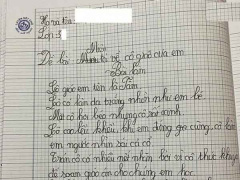 Họ và tên:
Lớp 3
Môn
Đề bài: kể về cô giáo của em
Bài làm
Cô giáo em tên là Tâm
Cô có làn da trắng nhìn như em bé
Mắt cô hơi béo nhưng cô rất xinh
Cô cao lêu khêu khi em đứng gọi cũng, cô làm
em người nhìn cái cổ cô
Trán cô có nhiều nết nhăn bởi vì cô thức khuya
để soạn giáo án cho chúng em học